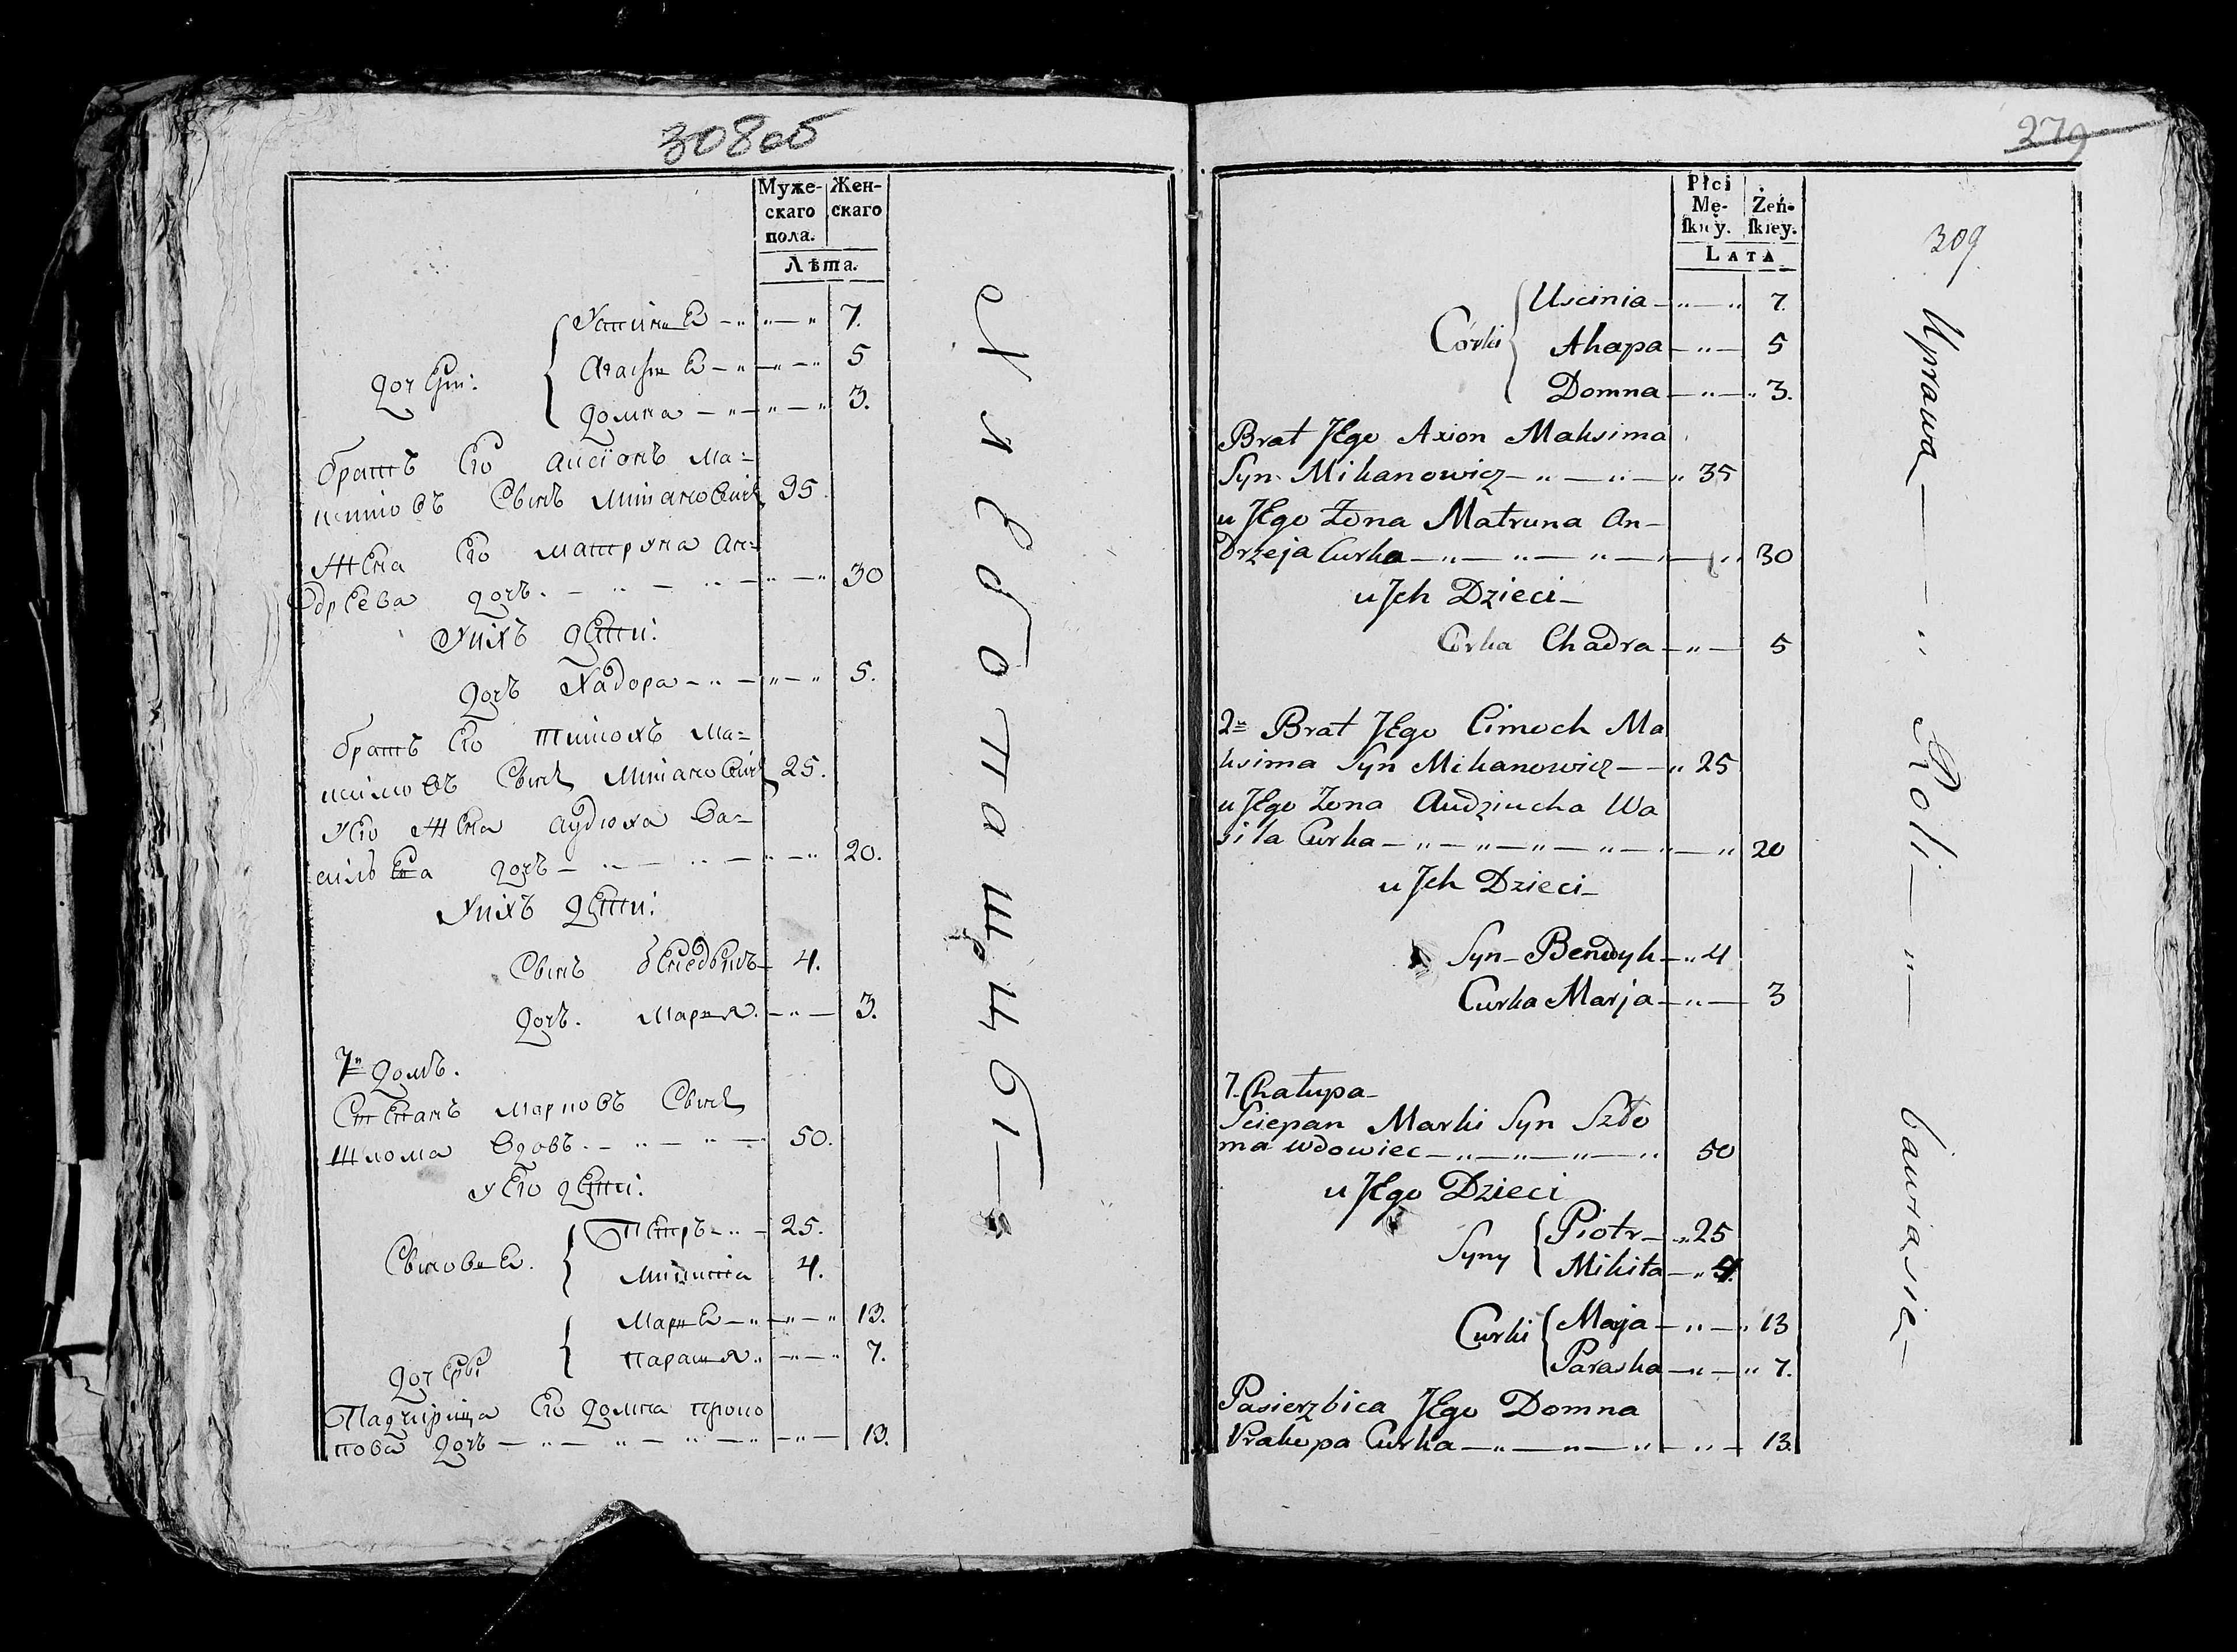 308об
Муже-
скаго
пола.
Жен-
скаго
Лѣта.
7.
дочери:
5
домна — „ — „ — „ 3.
братъ Его аксіонъ Ма=
ксимовъ Сынъ Миханович 35.
Жена Его матруна Ан=
дреева дочь. — „ — „ — „ — „ 30
Унихъ дети:
дочь Хадора — „ — „ — „ 5.
братъ Его тимохъ Ма=
ксимовъ Сынъ Миханович 25.
У Его Жена аудюха Ва=
сильева дочь — „ — „ — „ — „ 20.
Унихъ дети:
Сынъ бенедыкъ — 4.
дочь. Марья. — „ — 3.
7й домъ.
Степанъ Марковъ Сынъ
Шлома Вдовъ. — „ — „ — 50.
У Его дети:
Сыновье. Петръ — „ — 25.
Микита 4.
Марье — „ — „ — „ 13.
Параски „ — „ — „ 7.
дочеры
Падчирица Его домна проко
пова дочь — „ — „ — „ — „ — „ — 13.
279
309
Płci
Mę-
skiey.
Żeń-
skiey.
LATA
Uscinia — „ — „ 7.
Córki Ahapa — „ — 5
Domna — „ — „ 3.
Brat JEgo Axion Maksima
Syn Mikanowicz — „ — „ — „ 35
u JEgo Żona Matruna An-
drzeja Curka — „ — „ — „ — „ — „ 30
u Jch Dzieci —
Córka Chadra — „ — 5
2= Brat JEgo Cimoch Ma
ksima Syn Mikanowicz — — „ 25
u JEgo Żona Audziucha Wa
sila Curka — „ — „ — „ — „ — „ — „ 20
u Jch Dzieci —
Syn — Bendyk — „ 4
Curka Marja — „ — 3
7. Chałupa —
Sciepan Marki Syn Szło
ma wdowiec — „ — „ — „ — „ 50
u JEgo Dzieci
Syny Piotr — „ 25
Mikita — „ 4.
Curki Marja — „ — „ 13
Paraska — „ — „ 7.
Pasierzbica JEgo Domna
Prakopa Curka — „ — „ — „ — „ — 13.
Uprawa — — „ Roli — „ — bawiąsie —